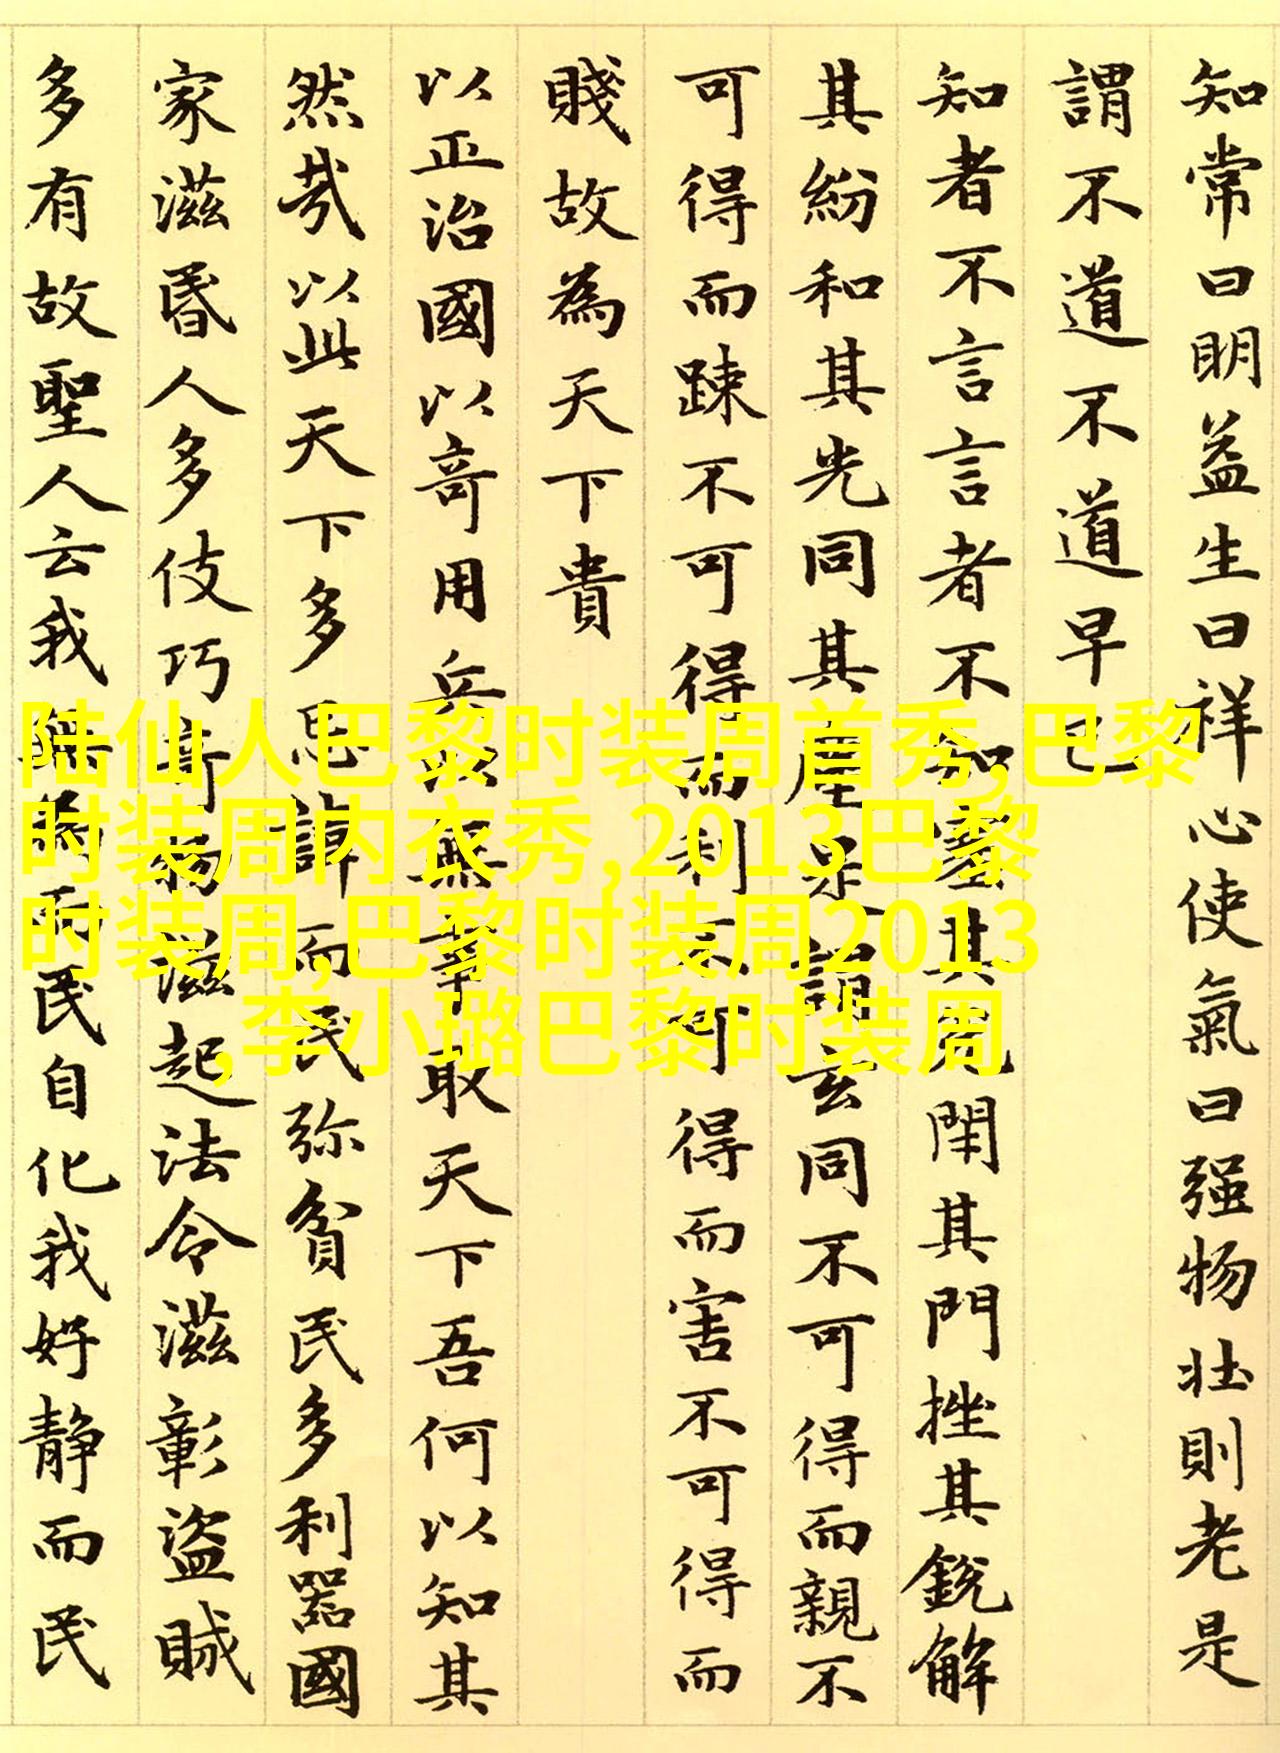 知常曰明益生曰祥心使氣曰强物壯則老是
謂不道不道早已
知者不言言者不知塞其兌閇其門挫其銳解
其紛和其光同其塵是謂玄同不可得而親不
可得而踈不可得而利不可得而害不可得而
賤故為天下貴
以正治國以奇用兵以無事取天下吾何以知其
然哉以此天下多忌諱而民弥貧民多利器國
家滋昬人多伎巧奇物滋起法令滋彰盜賊
多有故聖人云我無為而民自化我好靜而民
陆仙人巴黎时装周首秀,巴黎
时装周内衣秀,2013巴黎
时装周,巴黎时装周2013
,李小璐巴黎时装周